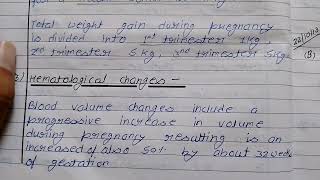 Total weight gain during pregnancy
is divided into 1st trimester 1kg
2nd trimester 5kg, 3rd trimester 5kg
Hematological changes -
Blood volume changes include a
progressive increase in volume
during pregnancy resulting is an
increased of also 50% by about 32 weeks
of gestation